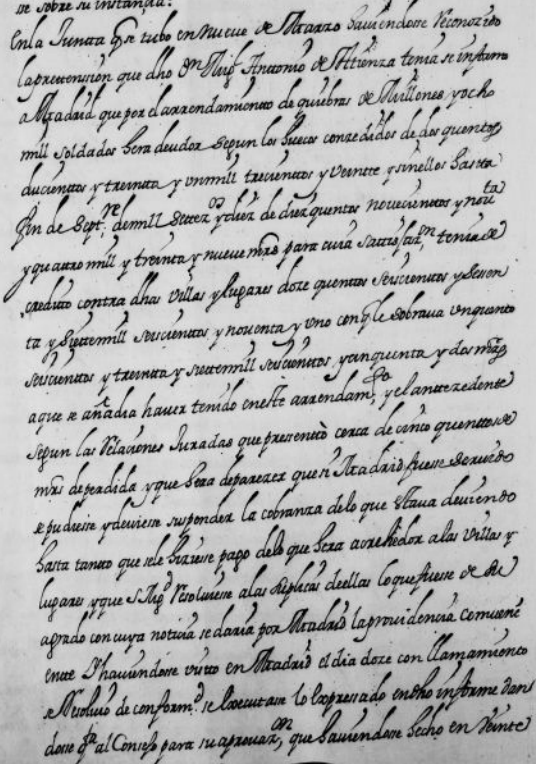 se sobre su instancia:
En la Junta q.e se tubo en Nueve de Marzo haviendose Reconozido
la pretension que dho D.n Mig.l Antonio de Atienza tenia se informo
a Madrid que por el arrendamiento de quiebras de Millones, y ocho
mill soldados hera deudor segun los huecos conzedidos de dos quentos
ducientos y treinta y un mill trecientos y veinte y sin ellos hasta
fin de Sept.re de mill Setez.os y diez de diez quentos novecientos y nov.ta
y quatro mill y treinta y nueve mrs para cuia satisfaz.on tenia de
credito contra dhas Villas y lugares doze quentos seiscientos y sesen
ta y siete mill seiscientos y noventa y uno con q.e le sobrava un quento
seiscientos y treinta y siete mill seiscientos y cinquenta y dos mrs
a que se añadia haver tenido en este arrendam.to y el antezedente
segun las Relaciones Juradas que presento cerca de cinco quentos de
mrs de perdida y que hera de parezer que si Madrid fuese servido
se pudiese y deviese suspender la cobranza de lo que estava deviendo
hasta tanto que se le hiziese pago de lo que hera acrehedor a las Villas y
lugares y que S. Mag.d Resolviese a las Replicas de ellas lo que fuese de su
agrado con cuya noticia se daria por Madrid la providencia comveni
ente Y haviendose visto en Madrid el dia doze con llamamiento
se Resolvio de conform.d se executase lo expressado en dho informe dan
dose q.ta al Consejo para su aprovaz.on, que haviendose hecho en Veinte